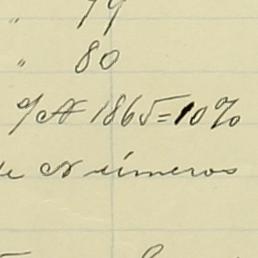 " 79
" 80
º/A 1865=10%
de Números